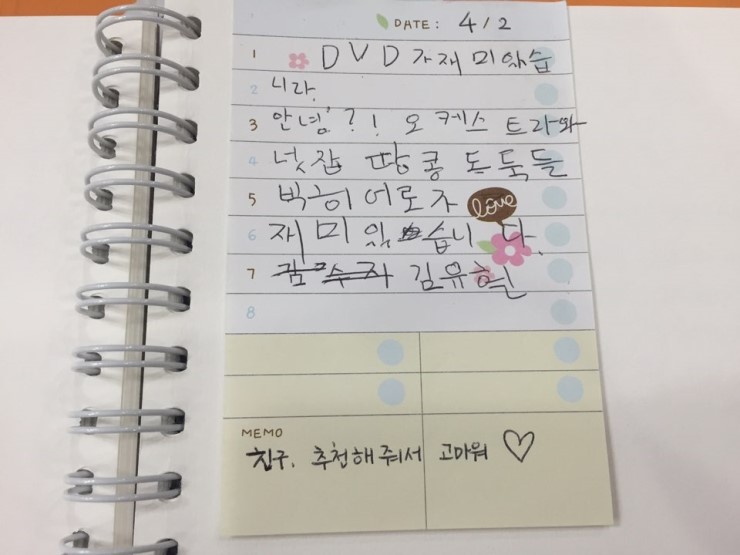 DATE: 4/2
1 DVD가 재미있습
2 니다.
3 안녕?! 오케스트라와
4 넛잡 땅콩 도둑들
5 빅히어로가 love
6 재미있습니다.
7
8
MEMO
친구. 추천해 줘서 고마워 ♡